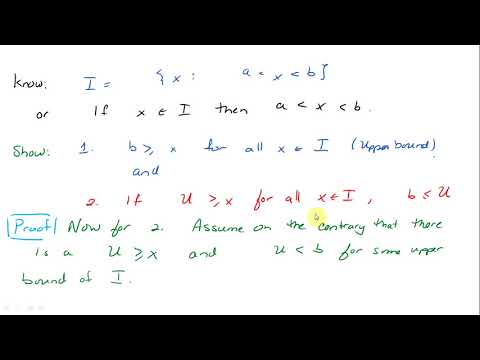 Know: I = { x : a < x < b }
or If x ∈ I then a < x < b.
Show: 1. b ≥ x for all x ∈ I (Upper bound)
and
2. If U ≥ x for all x ∈ I, b ≤ U
Proof Now for 2. Assume on the contrary that there
is a U ≥ x and U < b for some upper
bound of I.